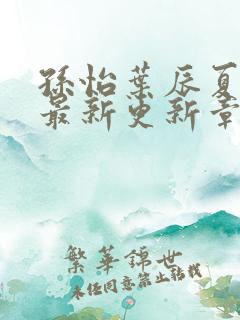 孫怡葉辰夏
最新更新章
繁華錦世
未經同意禁止轉載